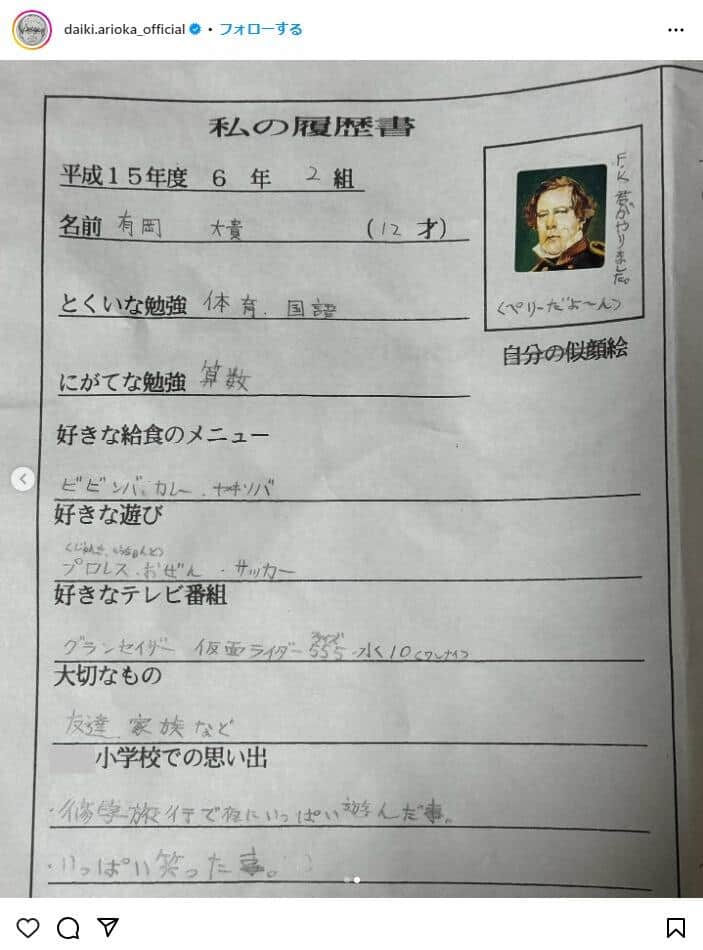 daiki.arioka_official • フォローする
私の履歴書
平成15年度 6年 2組
名前 有岡 大貴 (12才)
F.K君がやりました。
(ペリーだよ〜ん)
自分の似顔絵
とくいな勉強 体育、国語
にがてな勉強 算数
好きな給食のメニュー
ビビンバ、カレー、ヤキソバ
好きな遊び
プロレス・おぜん・サッカー
好きなテレビ番組
グランセイザー 仮面ライダー555 水10(ワンナイ)
ファイズ
大切なもの
友達 家族など
小学校での思い出
・修学旅行で夜にいっぱい遊んだ事。
・いっぱい笑った事。